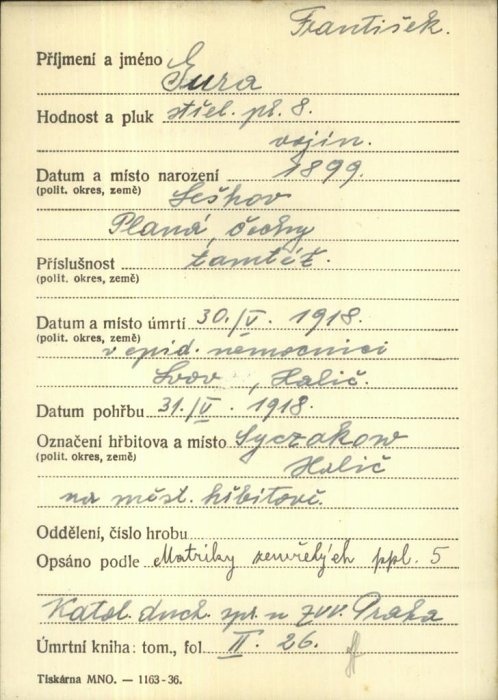 František.
Příjmení a jméno Gura
Hodnost a pluk střel. pl. 8.
vojín.
Datum a místo narození 1899.
(polit. okres, země) Lešhov
Planá, čechy
Příslušnost tamtéž.
(polit. okres, země)
Datum a místo úmrtí 30./V. 1918.
(polit. okres, země)
v epid. nemocnici
Lvov, Halič.
Datum pohřbu 31./V. 1918.
Označení hřbitova a místo Lyczakow
(polit. okres, země) Halič
na měst. hřbitově.
Oddělení, číslo hrobu
Opsáno podle Matriky zemřelých ppl. 5
Katol. duch. spr. u zvv. Praha
Úmrtní kniha: tom., fol. II. 26.
Tiskárna MNO. — 1163-36.